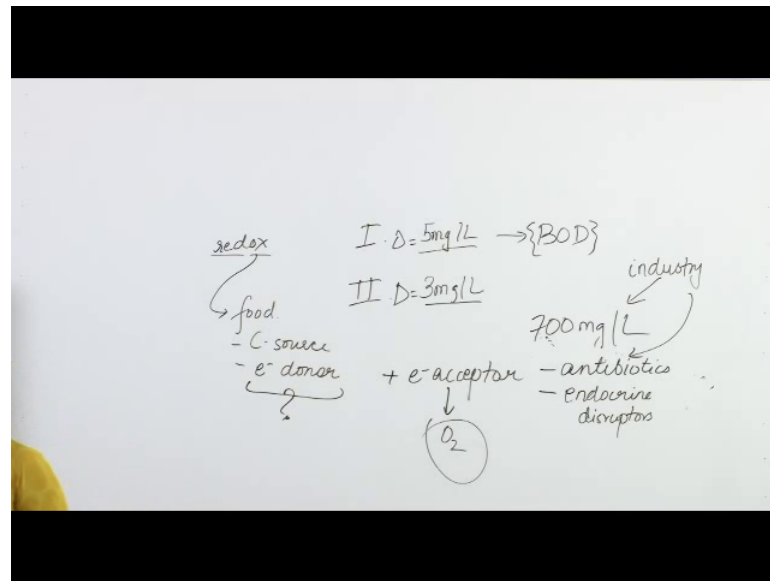 redox
I. D = 5mg/L → {BOD}
II. D = 3mg/L
industry
food
- C-source
- e- donar
700 mg/L
+ e-acceptor
- antibiotics
- endocrine
disruptors
O2